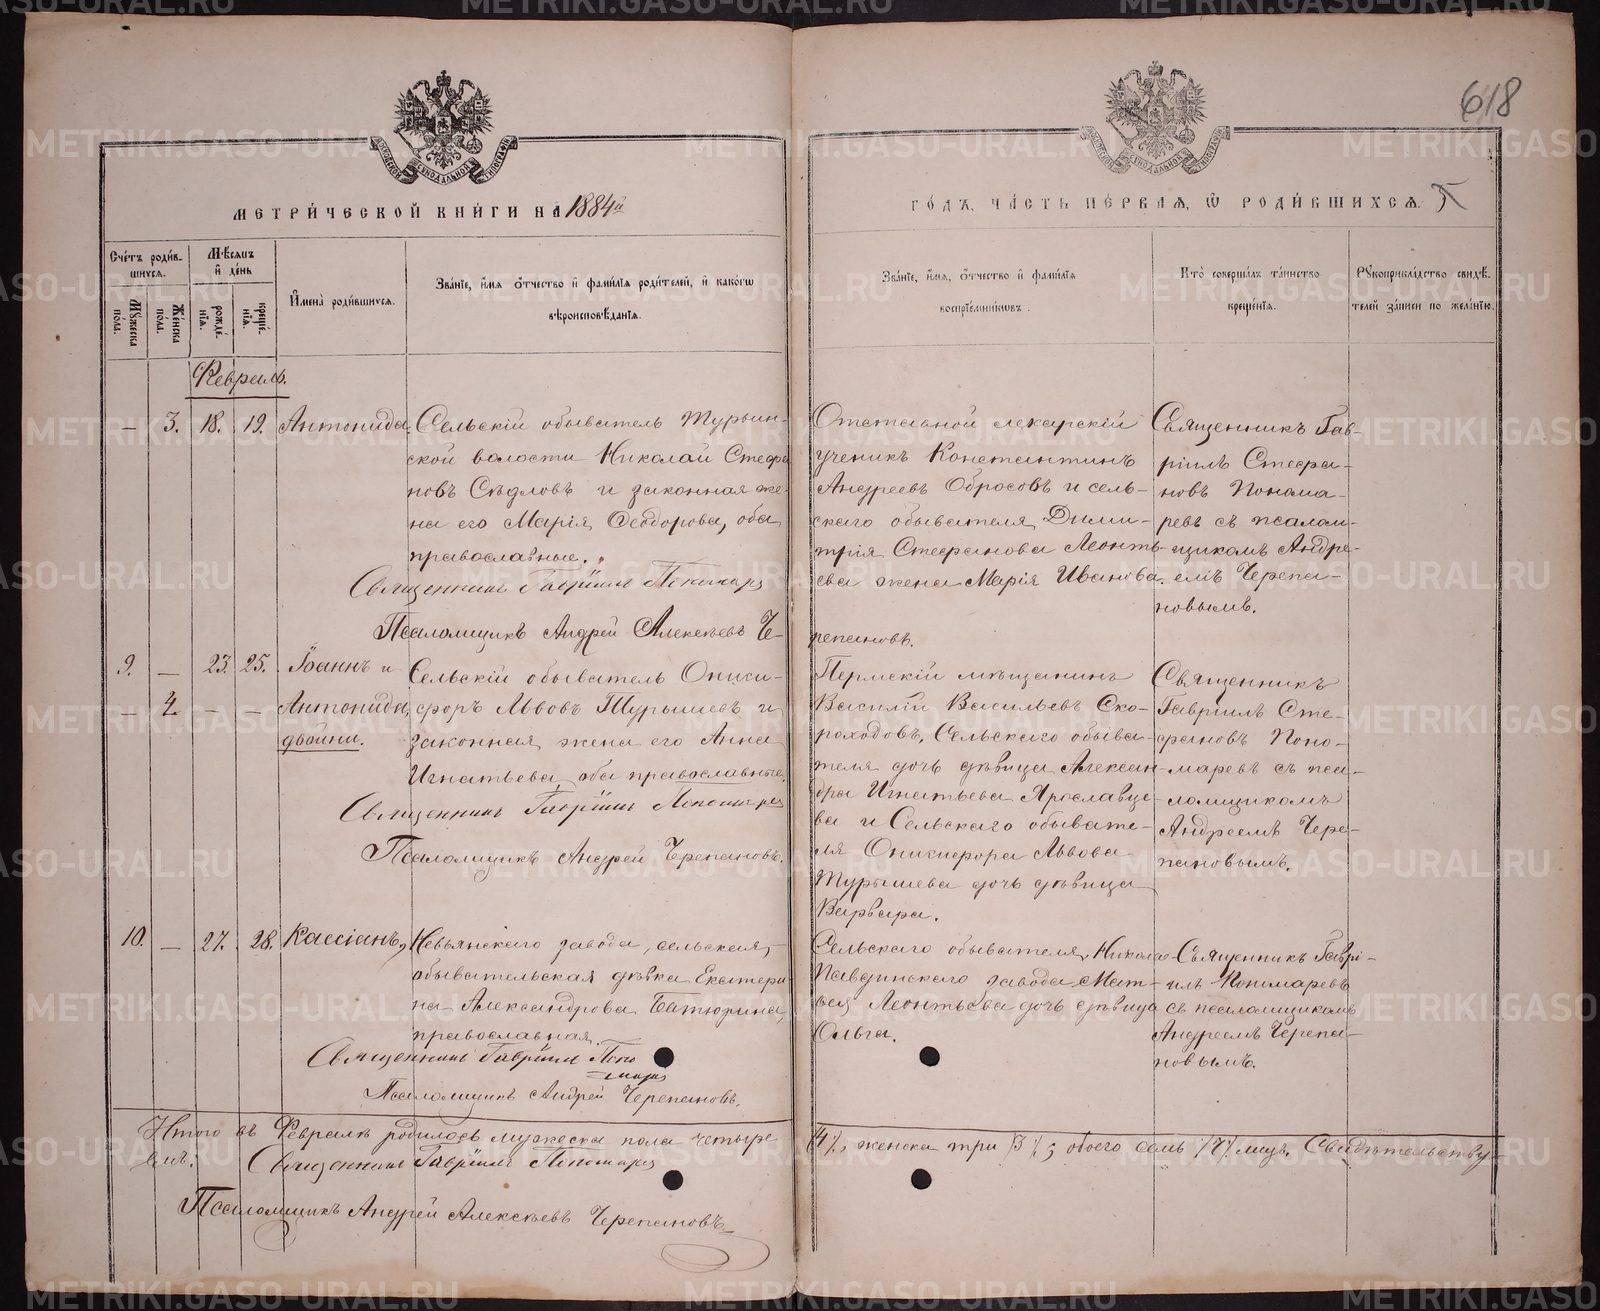 618
МЕТРИ́ЧЕСКОЙ КНИ́ГИ НА 1884й
ГО́ДЪ, ЧА́СТЬ ПЕ́РВАЯ, Ѡ РОДИ́ВШИХСЯ.
Сче́тъ роди́в-
шихся.
Му́жеска
по́ла.
Же́нска
по́ла.
Мѣ́сяцъ
и де́нь
рожде́-
нія.
креще́-
нія.
Имена̀ роди́вшихся.
Зва́ніе, и́мя ѻ́тчество и фами́лія роди́телей, и како́гѡ
вѣроисповѣ́данія.
Зва́ніе, и́мя, ѻ́тчество и фами́лія
воспріе́мниковъ.
Кто̀ соверша́лъ та́инство
креще́нія.
Рꙋкоприкла́дство свидѣ́-
телей за́писи по жела́нію.
Февраль.
— 3. 18. 19. Антонида.
Сельскій обыватель Турьин-
ской волости Николай Стефа
новъ Сѣдловъ и законная же-
на его Марія Ѳеодорова, оба
православные.
Священникъ Гавріилъ Пономаре
Псаломщикъ Андрей Алексѣевъ Че-
репановъ.
Отставной лекарскій
ученикъ Константинъ
Андреевъ Обросовъ и сель-
скаго обывателя Дими-
трія Стефанова Леонть-
ева жена Марія Иванова.
Священникъ Гав-
ріилъ Стефа-
новъ Понома-
ревъ съ псалом-
щикомъ Андре-
емъ Черепа-
новымъ.
9. — 23. 25. Іоаннъ и
— 4. — — Антонида,
двойни.
Сельскій обыватель Оники-
форъ Львовъ Турышевъ и
законная жена его Анна
Игнатьева, оба православные.
Священникъ Гавріилъ Пономаре
Псаломщикъ Андрей Черепановъ.
Пермскій мѣщанинъ
Василій Васильевъ Ско-
роходовъ, Сельскаго обыва-
теля дочь дѣвица Алексан-
дра Игнатьева Ярославце-
ва и Сельскаго обывате-
ля Оникифора Львова
Турышева дочь дѣвица
Варвара.
Священникъ
Гавріилъ Сте-
фановъ Поно-
маревъ съ пса-
ломщикомъ
Андреемъ Чере-
пановымъ.
10. — 27. 28. Кассіанъ,
Невьянскаго завода, сельская
обывательская дѣвка Екатери
на Александрова Батюрина,
православная.
Священникъ Гавріилъ Поно
маре
Псаломщикъ Андрей Черепановъ.
Сельскаго обывателя, Никола-
Павдинскаго завода Мат-
вея Леонтьева дочь дѣвица
Ольга.
Священникъ Гаврі-
илъ Пономаревъ
съ псаломщикомъ
Андреемъ Черепа-
новымъ.
Итого въ Февралѣ родилось мужеска пола четыре /4/, женска три /3/, обоего семь /7/ лицъ. Свидѣтельству-
емъ. Священникъ Гавріилъ Пономаре
Псаломщикъ Андрей Алексѣевъ Черепановъ